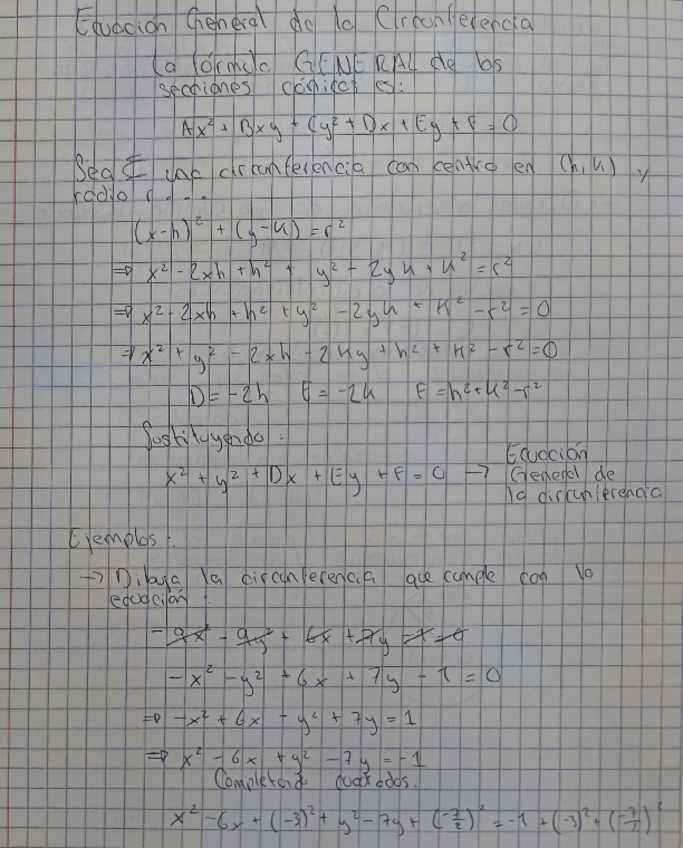 Ecuación General de la Circunferencia
La fórmula GENERAL de las
secciones cónicas es:
Ax² + Bxy + Cy² + Dx + Ey + F = 0
Sea C una circunferencia con centro en (h,k) y
radio r . . . .
(x-h)² + (y-k) = r²
⇒ x² - 2xh + h² + y² - 2yk + k² = r²
⇒ x² - 2xh + h² + y² - 2yk + k² - r² = 0
⇒ x² + y² - 2xh - 2ky + h² + k² - r² = 0
D = -2h E = -2k F = h² + k² - r²
Sustituyendo:
x² + y² + Dx + Ey + F = 0 → Ecuación
General de
la circunferencia
Ejemplos:
→ Dibuja la circunferencia que cumple con la
ecuación:
-9x² - 9y² + 6x + 7y - 1 = 0
-x² - y² + 6x + 7y - 1 = 0
⇒ -x² + 6x - y² + 7y = 1
⇒ x² - 6x + y² - 7y = -1
Completando cuadrados.
x² - 6x + (-3)² + y² - 7y + (-7/2)² = -1 + (-3)² + (-7/2)²